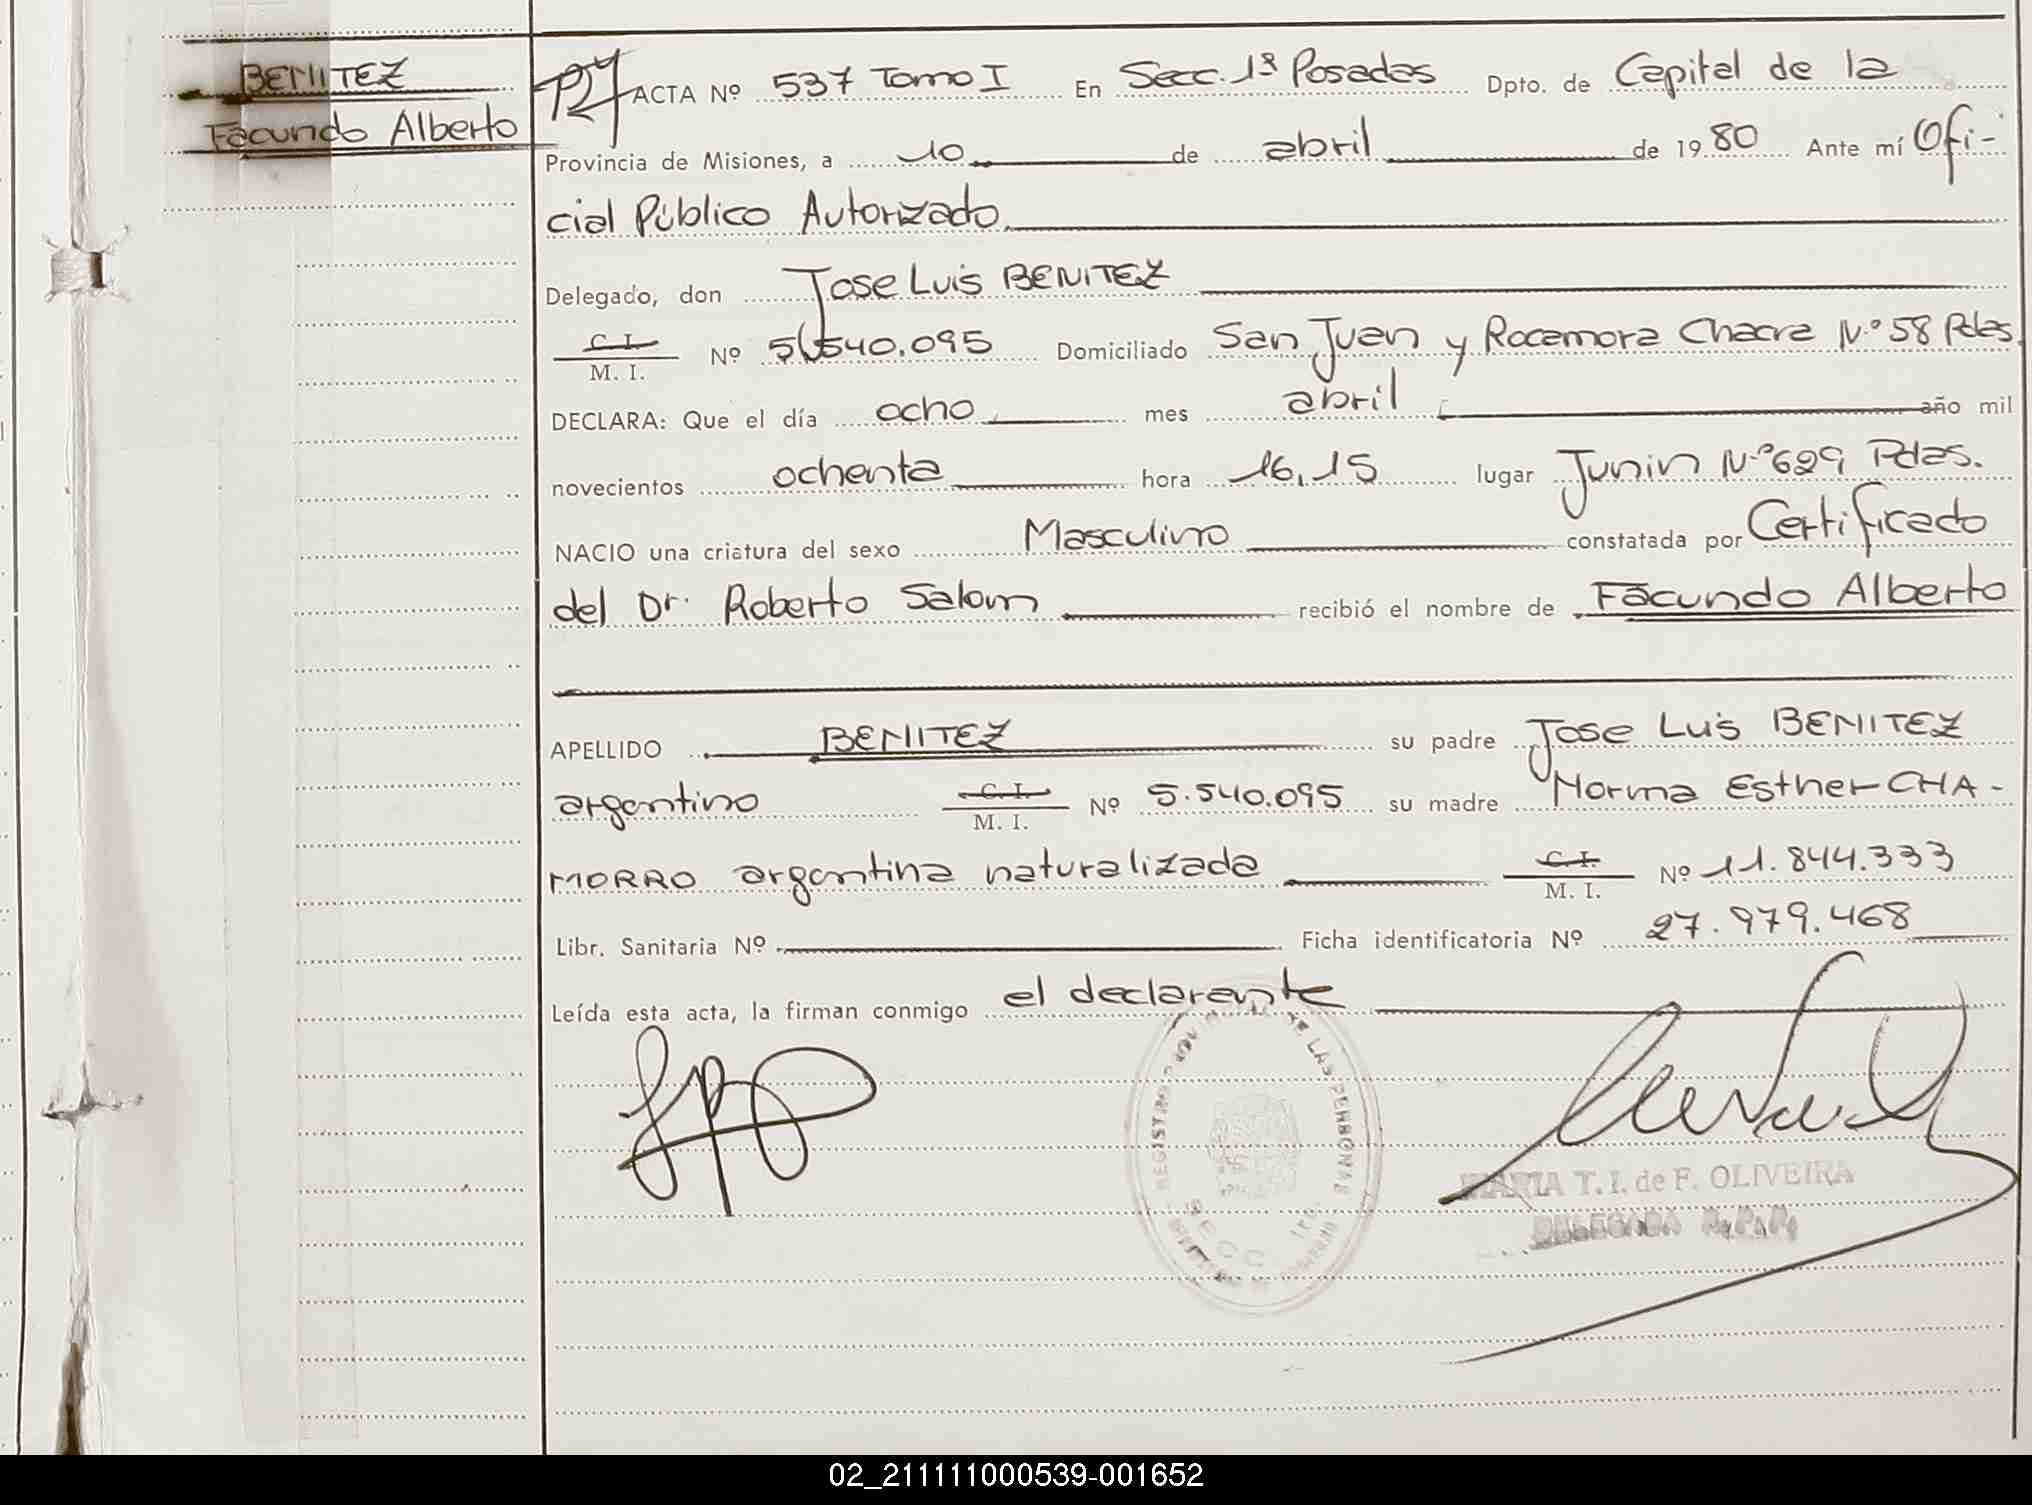 BENITEZ
Facundo Alberto
ACTA Nº 537 Tomo I En Secc. 1ª Posadas Dpto. de Capital de la
Provincia de Misiones, a 10 de abril de 1980 Ante mí Ofi-
cial Público Autorizado.
Delegado, don Jose Luis BENITEZ
C. I.
M. I. Nº 5.540.095 Domiciliado San Juan y Rocamora Chacra N.º 58 Pdas.
DECLARA: Que el día ocho mes abril año mil
novecientos ochenta hora 16,15 lugar Junin N.º 629 Pdas.
NACIO una criatura del sexo Masculino constatada por Certificado
del Dr. Roberto Salom recibió el nombre de Facundo Alberto
APELLIDO BENITEZ su padre Jose Luis BENITEZ
argentino C. I.
M. I. Nº 5.540.095 su madre Norma Esther CHA-
MORRO argentina naturalizada C. I.
M. I. Nº 11.844.333
Libr. Sanitaria Nº Ficha identificatoria Nº 27.979.468
Leída esta acta, la firman conmigo el declarante
REGISTRO PROVINCIAL DE LAS PERSONAS
SECC. 1ra.
MARIA T. I. de F. OLIVEIRA
DELEGADA R.P.P.
02_211111000539-001652